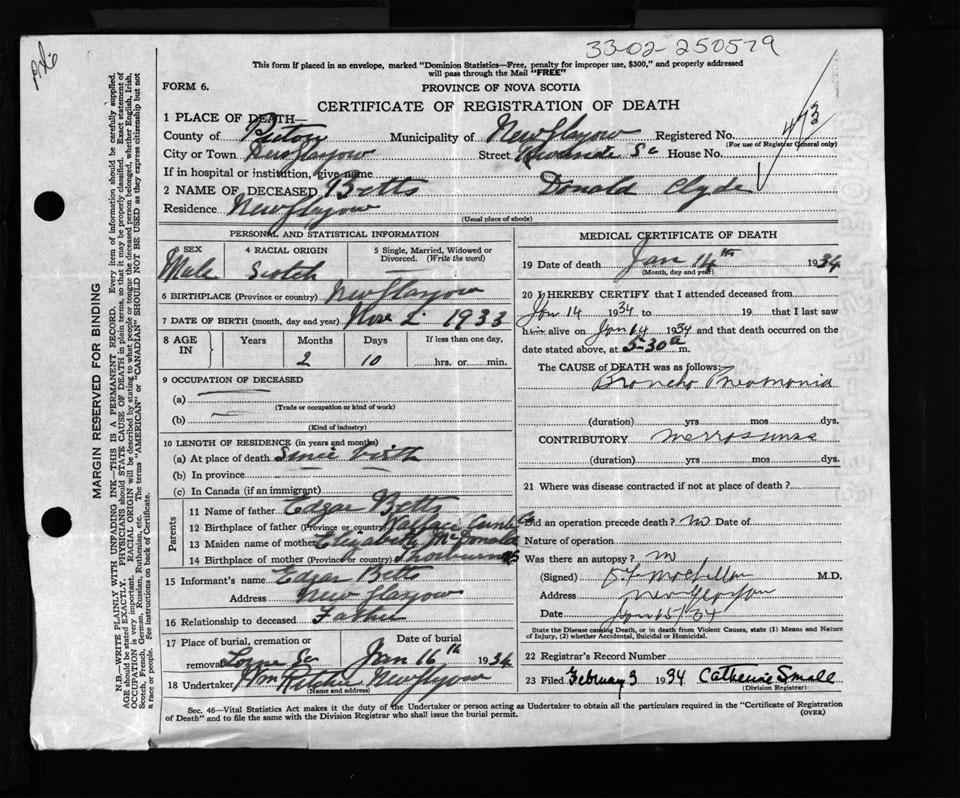 33-02-250579
This form if placed in an envelope, marked "Dominion Statistics—Free, penalty for improper use, $300," and properly addressed
will pass through the Mail "FREE"
FORM 6.
PROVINCE OF NOVA SCOTIA
CERTIFICATE OF REGISTRATION OF DEATH
1 PLACE OF DEATH—
County of Pictou Municipality of New Glasgow Registered No. 473
(For use of Registrar General only)
City or Town New Glasgow Street Riverside St House No.
If in hospital or institution, give name
2 NAME OF DECEASED Betts Donald Clyde
Residence New Glasgow
(Usual place of abode)
PERSONAL AND STATISTICAL INFORMATION
3 SEX Male
4 RACIAL ORIGIN Scotch
5 Single, Married, Widowed or Divorced. (Write the word)
6 BIRTHPLACE (Province or country) New Glasgow
7 DATE OF BIRTH (month, day and year) Nov 2 1933
8 AGE IN Years Months 2 Days 10 If less than one day, hrs. or min.
9 OCCUPATION OF DECEASED
(a)
(Trade or occupation or kind of work)
(b)
(Kind of industry)
10 LENGTH OF RESIDENCE (in years and months)
(a) At place of death Since birth
(b) In province
(c) In Canada (if an immigrant)
Parents
11 Name of father Edgar Betts
12 Birthplace of father (Province or country) Wallace Cumb Co
13 Maiden name of mother Elizabeth McDonald
14 Birthplace of mother (Province or country) Thorburn NS
15 Informant's name Edgar Betts
Address New Glasgow
16 Relationship to deceased Father
17 Place of burial, cremation or removal Lorne St Date of burial Jan 16th 1934
18 Undertaker Wm Ritchie New Glasgow
(Name and address)
MEDICAL CERTIFICATE OF DEATH
19 Date of death Jan 14th 1934
(Month, day and year)
20 I HEREBY CERTIFY that I attended deceased from
Jan 14 1934 to 19 that I last saw
him alive on Jan 14 1934 and that death occurred on the
date stated above, at 5-30 a m.
The CAUSE of DEATH was as follows:
Broncho Pneumonia
(duration) yrs mos dys.
CONTRIBUTORY
(duration) yrs mos dys.
21 Where was disease contracted if not at place of death?
Did an operation precede death? no Date of
Nature of operation
Was there an autopsy? no
(Signed) M.D.
Address New Glasgow
Date Jan 15/34
State the Disease causing Death, or in death from Violent Causes, state (1) Means and Nature
of Injury, (2) whether Accidental, Suicidal or Homicidal.
22 Registrar's Record Number
23 Filed February 3 1934 Catherine Small
(Division Registrar)
Sec. 46—Vital Statistics Act makes it the duty of the Undertaker or person acting as Undertaker to obtain all the particulars required in the "Certificate of Registration
of Death" and to file the same with the Division Registrar who shall issue the burial permit.
(OVER)
MARGIN RESERVED FOR BINDING
N.B.—WRITE PLAINLY WITH UNFADING INK—THIS IS A PERMANENT RECORD. Every item of information should be carefully supplied.
AGE should be stated EXACTLY. PHYSICIANS should STATE CAUSE OF DEATH in plain terms, so that it may be properly classified. Exact statement of
OCCUPATION is very important. RACIAL ORIGIN will be described by stating to what people or tongue the deceased person belonged, whether English, Irish,
Scotch, French, German, Russian, Ruthenian, etc. The terms "AMERICAN" or "CANADIAN" SHOULD NOT BE USED as they express citizenship but not
a race or people. See instructions on back of Certificate.